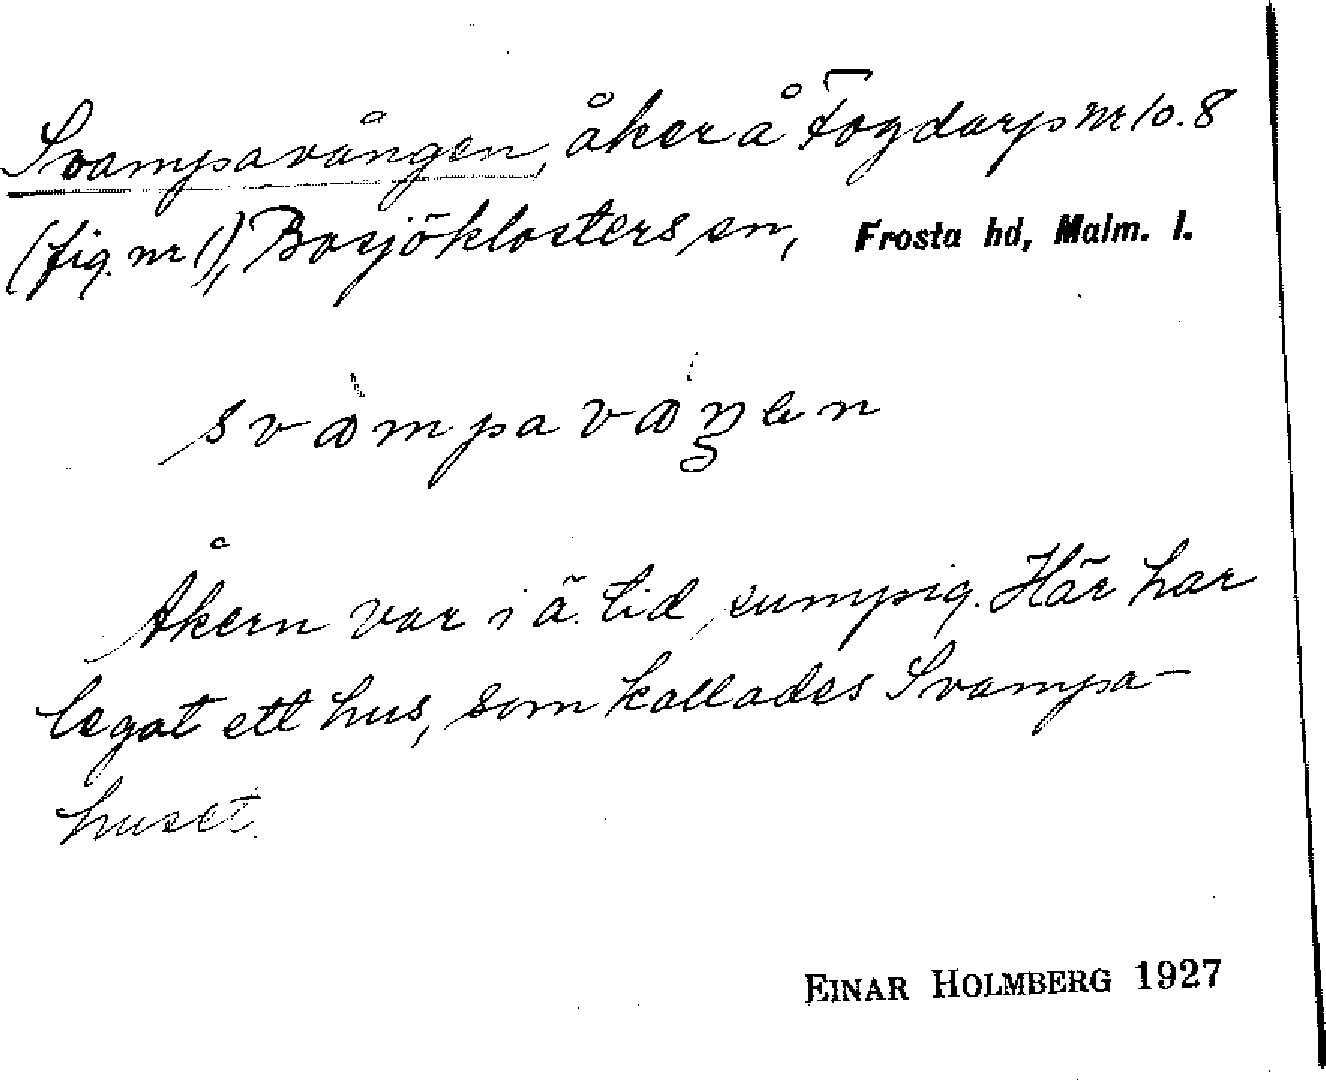 Svampavången, åker å Fogdarp nr 10.8
(fig. nr 1), Bosjöklosters sn, Frosta hd, Malm. l.
Åkern var i ä. tid sumpig. Här har
legat ett hus, som kallades Svampa-
huset.
EINAR HOLMBERG 1927